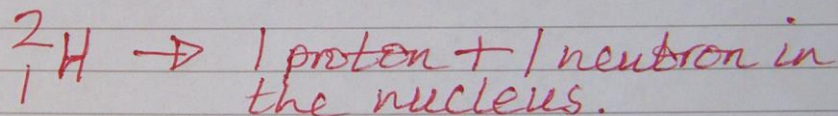 ²₁H → 1 proton + 1 neutron in
the nucleus.